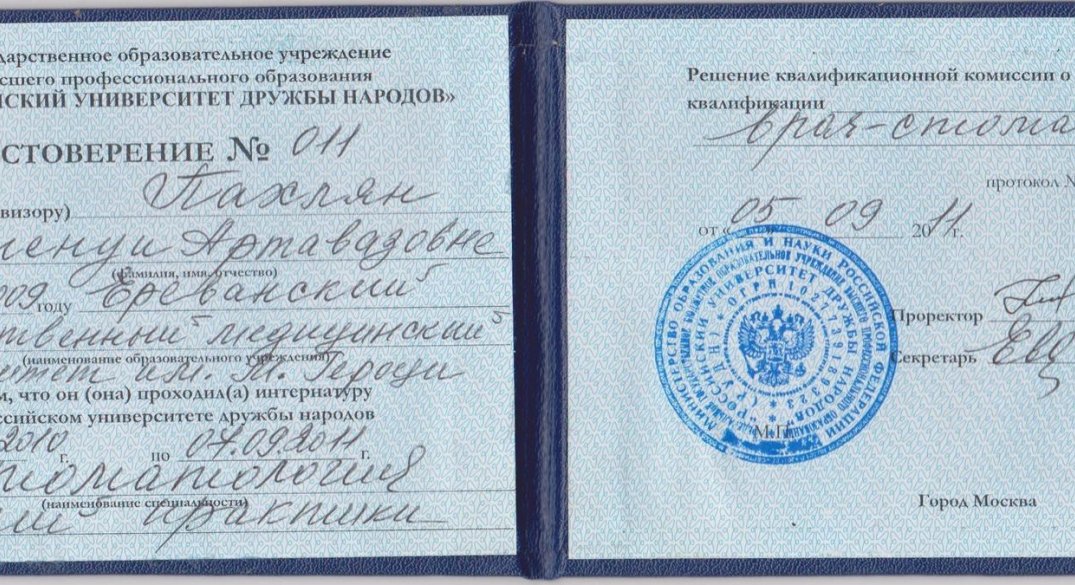 дарственное образовательное учреждение
сшего профессионального образования
НСКИЙ УНИВЕРСИТЕТ ДРУЖБЫ НАРОДОВ»
СТОВЕРЕНИЕ № 011
Пахлян
визору)
Артавазовне
(фамилия, имя, отчество)
009 году Ереванский
твенный медицинский
(наименование образовательного учреждения)
итет им. М. Гераци
м, что он (она) проходил(а) интернатуру
ссийском университете дружбы народов
2010 г. по 07.09.2011 г.
томатология
(наименование специальности)
практики
Решение квалификационной комиссии о
квалификации
врач-стома
протокол №
от « 05 09 2011 г.
МИНИСТЕРСТВО ОБРАЗОВАНИЯ И НАУКИ РОССИЙСКОЙ ФЕДЕРАЦИИ
РОССИЙСКИЙ УНИВЕРСИТЕТ ДРУЖБЫ НАРОДОВ
(РУДН) * ОГРН 1027739189323 *
Проректор
Секретарь
М.П.
Город Москва